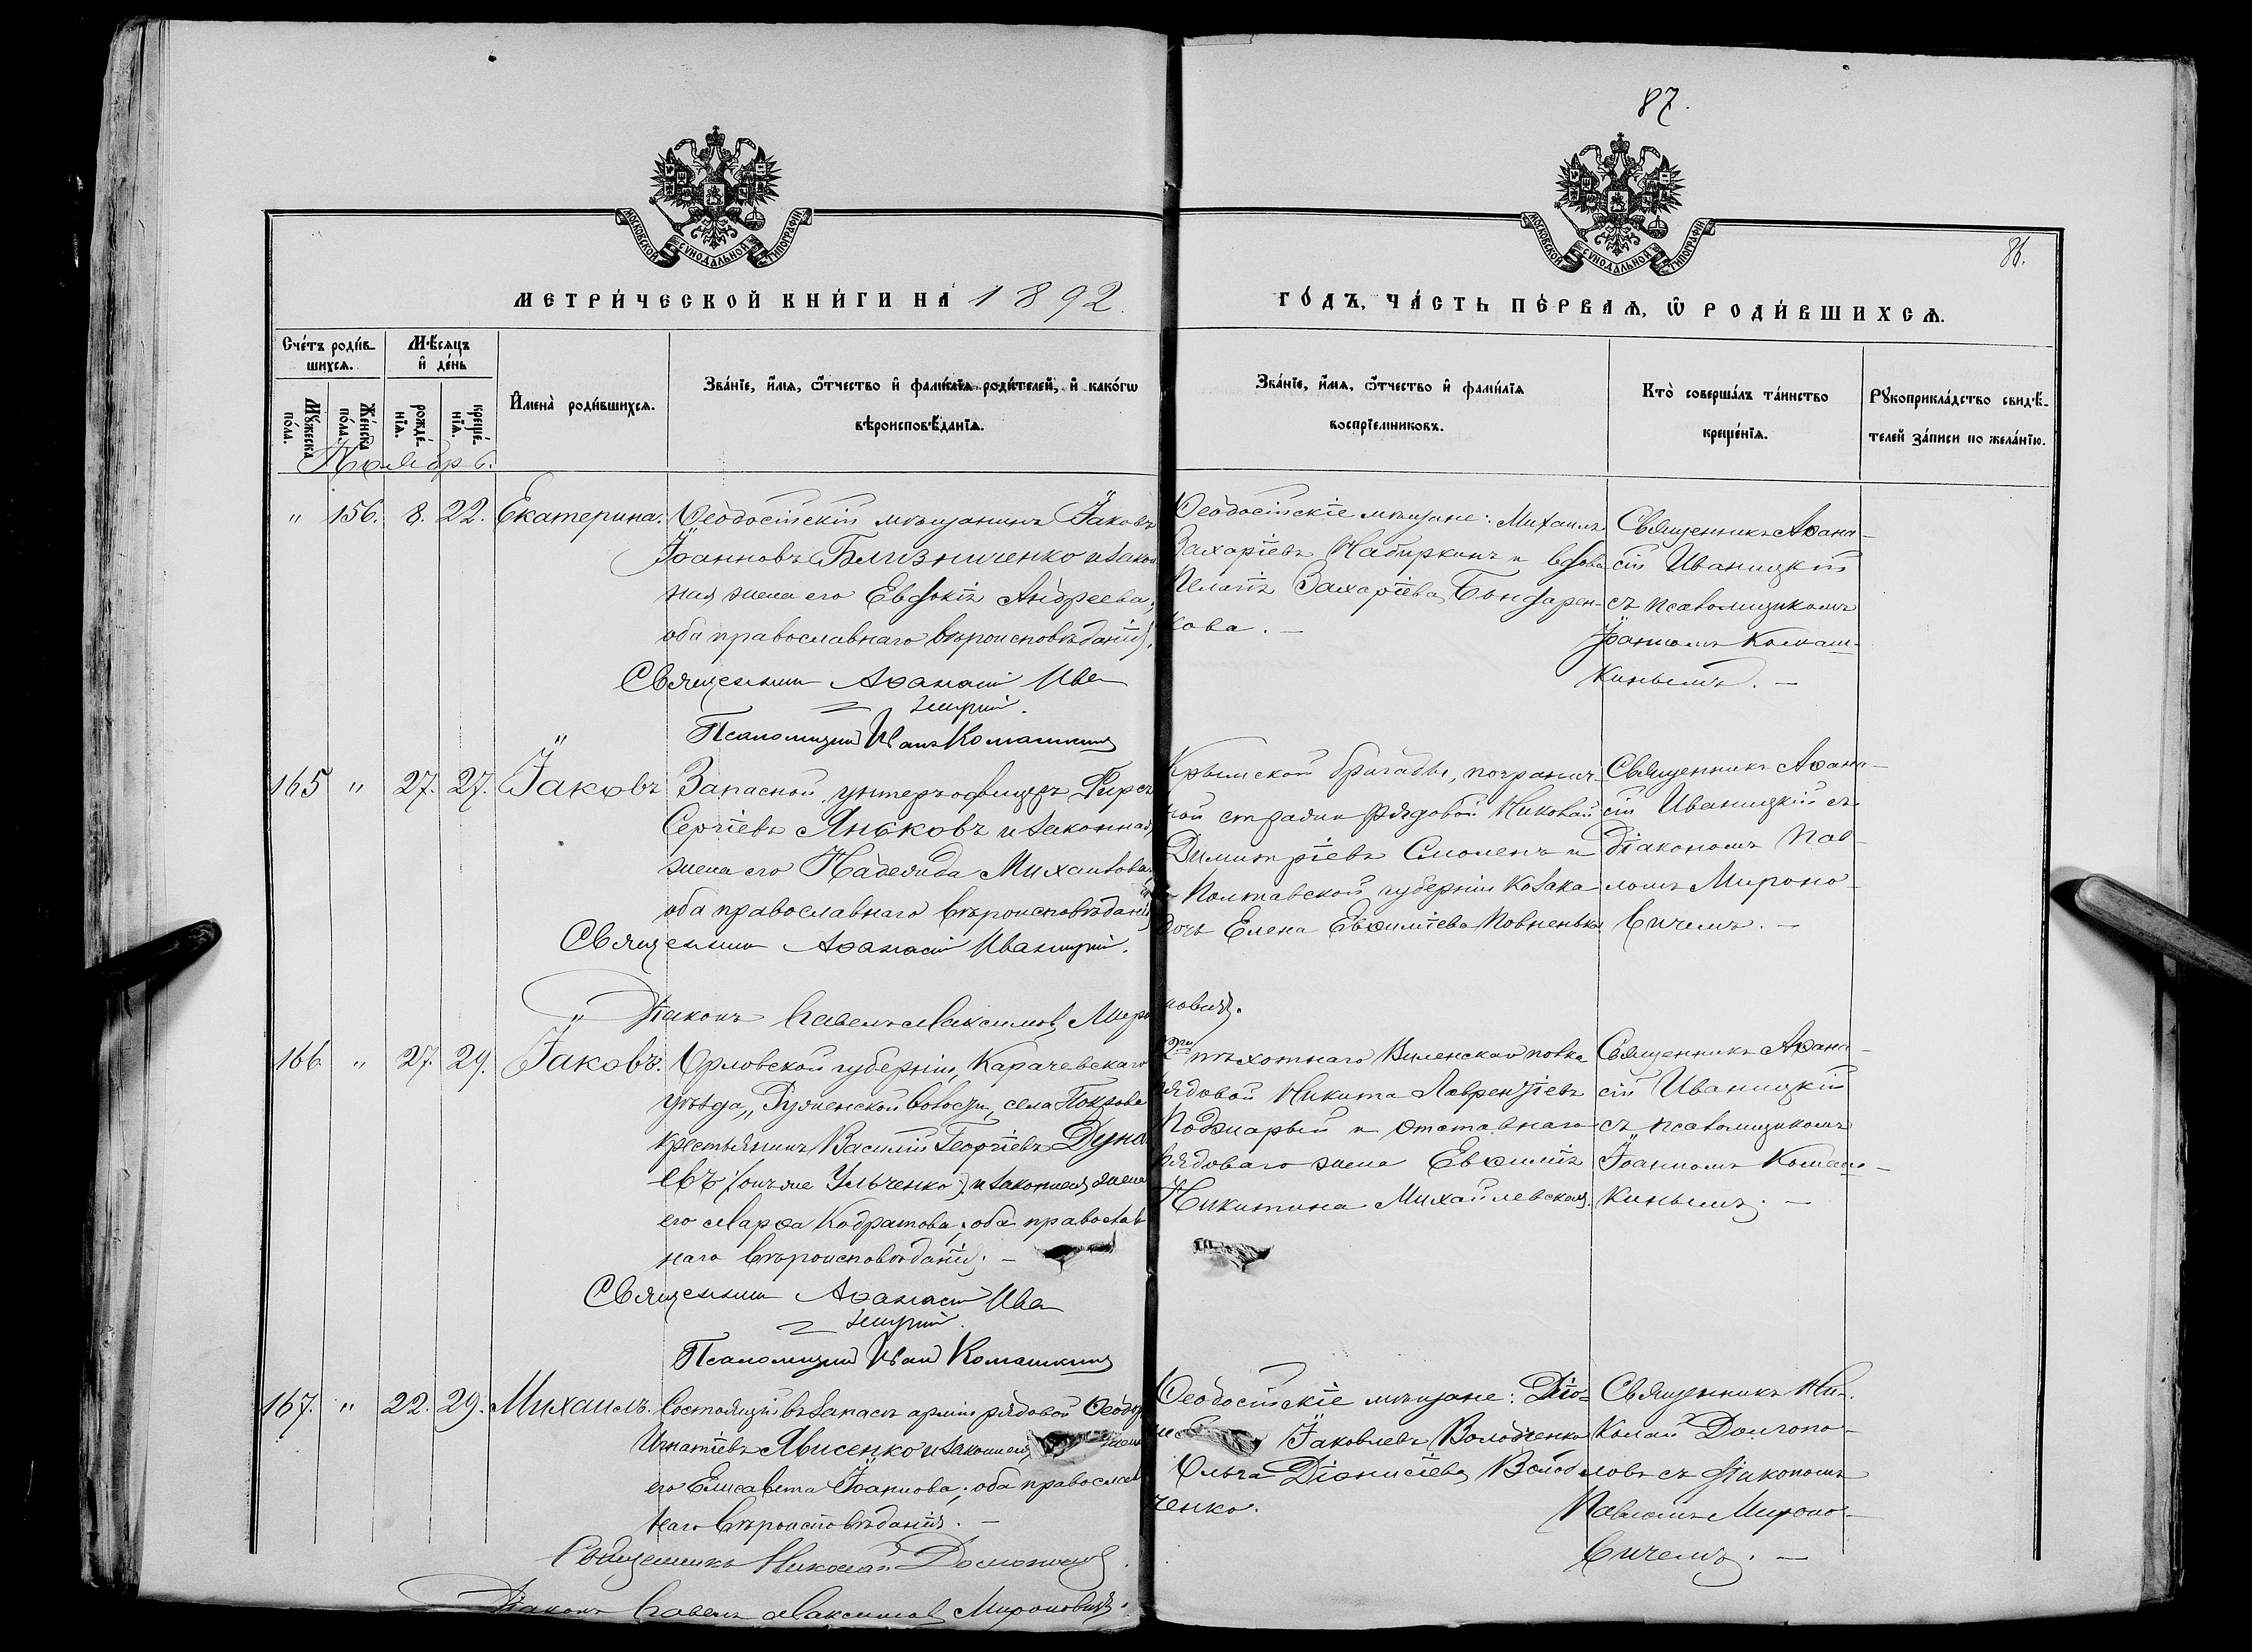 87.
86.
МОСКОВСКОЙ СѴНОДАЛЬНОЙ ТИПОГРАФІИ
МОСКОВСКОЙ СѴНОДАЛЬНОЙ ТИПОГРАФІИ
МЕТРИ́ЧЕСКОЙ КНИ́ГИ НА̀ 1892.
ГО́ДЪ, ЧА́СТЬ ПЕ́РВАѦ, Ѡ҆ РОДИ́ВШИХСѦ.
Сче́тъ роди́в-
шихсѧ.
Мꙋ́жеска по́ла.
Же́нска по́ла.
Мѣ́сѧцъ
и҆ де́нь
рожде́-
нїѧ.
креще́-
нїѧ.
И҆мена̀ роди́вшихсѧ.
Зва́нїе, и҆́мѧ, ѻ҆́тчество и҆ фами́лїѧ роди́телей, и҆ како́гѡ
вѣроисповѣ́данїѧ.
Зва́нїе, и҆́мѧ, ѻ҆́тчество и҆ фами́лїѧ
воспрїемниковъ.
Кто̀ соверша́лъ та́инство
креще́нїѧ.
Рꙋкоприкла́дство свидѣ́-
телей за́писи по жела́нїю.
Ноябрь.
" 156. 8. 22. Екатерина.
Ѳеодосійскій мѣщанинъ Іаковъ
Іоанновъ Близниченко и закон
ная жена его Евдокія Андреева,
оба православнаго вѣроисповѣданія.
Священник Аѳанасій Ива
ницкій.
Псаломщик Иван Комашкин
Ѳеодосійскіе мѣщане: Михаилъ
Захаріевъ Набиркинъ и вдова
Пелагія Захаріева Бондарен-
кова. —
Священникъ Аѳана-
сій Иваницкій
съ псаломщикомъ
Іоанномъ Комаш-
кинымъ. —
165 " 27. 27. Іаковъ
Запасной унтеръ офицеръ Фирсъ
Сергіевъ Яньковъ и законная
жена его Надежда Михайлова
оба православнаго вѣроисповѣданія
Священник Аѳанасій Иваницкій.
Діаконъ Павелъ Максимов Миро
новичъ.
Крымской бригады, погранич-
ной стражи рядовой Николай
Димитріевъ Смоленъ и
Полтавской губерніи козака
дочь Елена Евѳиміева Повненька
Священникъ Аѳана-
сій Иваницкій съ
діакономъ Пав-
ломъ Мироно-
вичемъ. —
166 " 27. 29. Іаковъ.
Орловской губерніи, Карачевскаго
уѣзда, волости, села
крестьянинъ Василій Георгіевъ Дуна
евъ (онъ же Ульченко) и законная жена
его Марѳа Кодратова, оба православ
наго вѣроисповѣданія. —
Священник Аѳанасій Ива
ницкій.
Псаломщик Иван Комашкин
пѣхотнаго Виленскаго полка
рядовой Никита Лаврентіевъ
Поджарый и отставнаго
рядоваго жена Евѳимія
Никитина Михайлевская.
Священникъ Аѳана-
сій Иваницкій
съ псаломщикомъ
Іоанномъ Комаш-
кинымъ. —
167. " 22. 29. Михаилъ.
Состоящій въ запасѣ арміи рядовой
Игнатіевъ Явисенко и законная жена
его Елисавета Іоаннова, оба православ
наго вѣроисповѣданія. —
Священникъ Николай
Діаконъ Павелъ Максимов Мироновичъ.
Ѳеодосійскіе мѣщане: Діо-
Іаковлевъ Володченко
Ольга Діонисіева Волод
ченко.
Священникъ Ни-
колай Долгопо-
ловъ съ діакономъ
Павломъ Мироно-
вичемъ. —